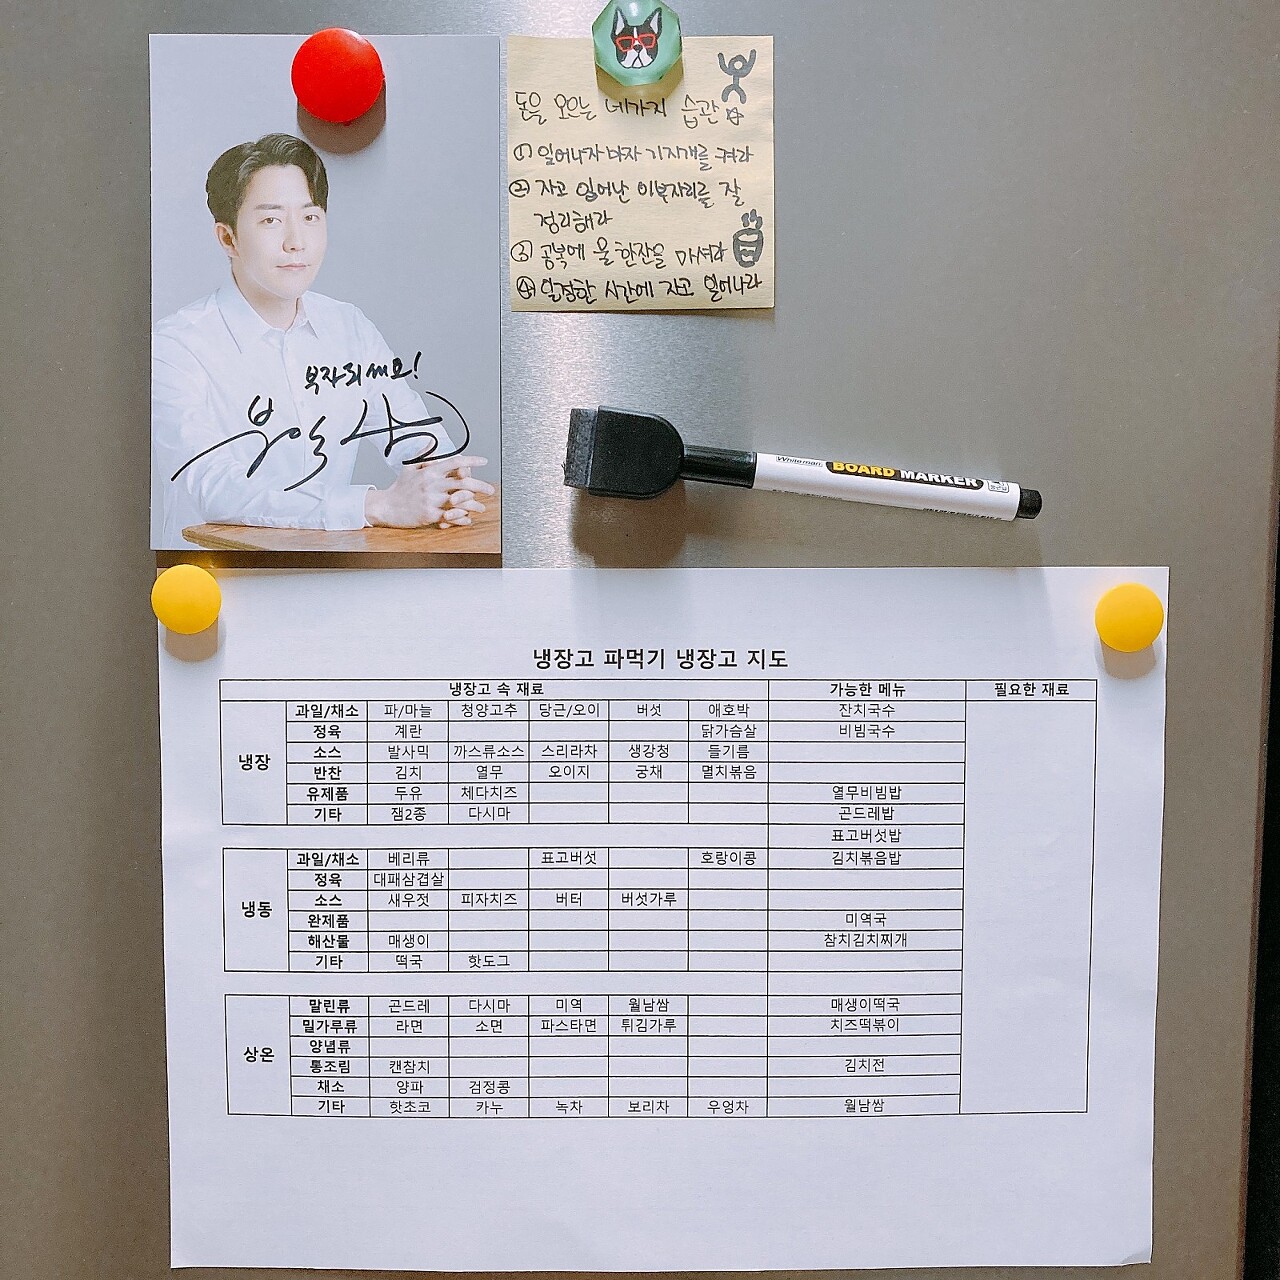 부자되세요!
부읽남
돈을 모으는 네가지 습관
① 일어나자마자 기지개를 켜라
② 자고 일어난 이부자리를 잘
정리해라
③ 공복에 물 한잔을 마셔라
④ 일정한 시간에 자고 일어나라
Whiteman BOARD MARKER
냉장고 파먹기 냉장고 지도
냉장고 속 재료 가능한 메뉴 필요한 재료
냉장
과일/채소 파/마늘 청양고추 당근/오이 버섯 애호박 잔치국수
정육 계란 닭가슴살 비빔국수
소스 발사믹 까스류소스 스리라차 생강청 들기름
반찬 김치 열무 오이지 궁채 멸치볶음
유제품 두유 체다치즈 열무비빔밥
기타 잼2종 다시마 곤드레밥
표고버섯밥
냉동
과일/채소 베리류 표고버섯 호랑이콩 김치볶음밥
정육 대패삼겹살
소스 새우젓 피자치즈 버터 버섯가루
완제품 미역국
해산물 매생이 참치김치찌개
기타 떡국 핫도그
상온
말린류 곤드레 다시마 미역 월남쌈 매생이떡국
밀가루류 라면 소면 파스타면 튀김가루 치즈떡볶이
양념류
통조림 캔참치 김치전
채소 양파 검정콩
기타 핫초코 카누 녹차 보리차 우엉차 월남쌈